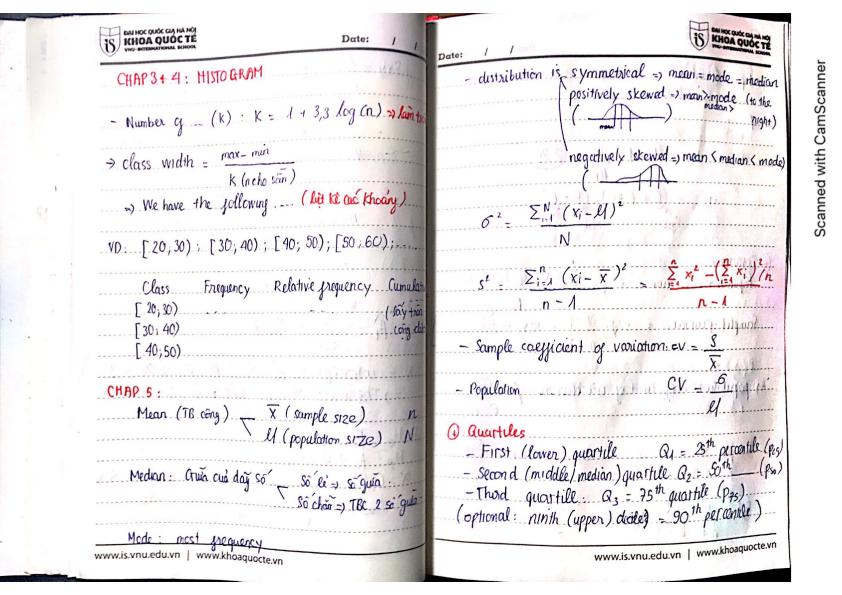 ĐẠI HỌC QUỐC GIA HÀ NỘI
KHOA QUỐC TẾ
VNU-INTERNATIONAL SCHOOL
Date: / /
CHAP 3+4: HISTOGRAM
- Number of ... (k) : K = 1 + 3,3 log (n) ⇒ làm
→ class width = max - min / K (n cho sẵn)
⇒ We have the following .... (liệt kê các khoảng)
VD: [20,30) ; [30; 40) ; [40; 50) ; [50,60);....
Class Frequency Relative frequency Cumula
[20;30)
[30; 40)
[40;50)
CHAP 5:
Mean (TB cộng) x̅ (sample size) n
μ (population size) N
Median: Giữa của dãy số Số lẻ ⇒ số giữa
Số chẵn ⇒ TBC 2 số giữa
Mode: most frequency
www.is.vnu.edu.vn | www.khoaquocte.vn
ĐẠI HỌC QUỐC GIA HÀ NỘI
KHOA QUỐC TẾ
VNU-INTERNATIONAL SCHOOL
Date: / /
- distribution is symmetrical ⇒ mean = mode = median
positively skewed ⇒ mean > mode (to the
median > right)
negatively skewed ⇒ mean < median < mode)
σ² = Σᴺᵢ₌₁ (xi - μ)² / N
s² = Σⁿᵢ₌₁ (xi - x̅)² / n - 1 = Σⁿᵢ₌₁ xi² - (Σⁿᵢ₌₁ xi)²/n / n - 1
- Sample coefficient of variation: cv = s / x̅
- Population CV = σ / μ
Quartiles
- First (lower) quartile Q₁ = 25th percentile (p₂₅)
- Second (middle/median) quartile Q₂ = 50th ___ (p₅₀)
- Third quartile: Q₃ = 75th quartile (P₇₅)
(optional: ninth (upper) decile) = 90th percentile)
www.is.vnu.edu.vn | www.khoaquocte.vn
Scanned with CamScanner